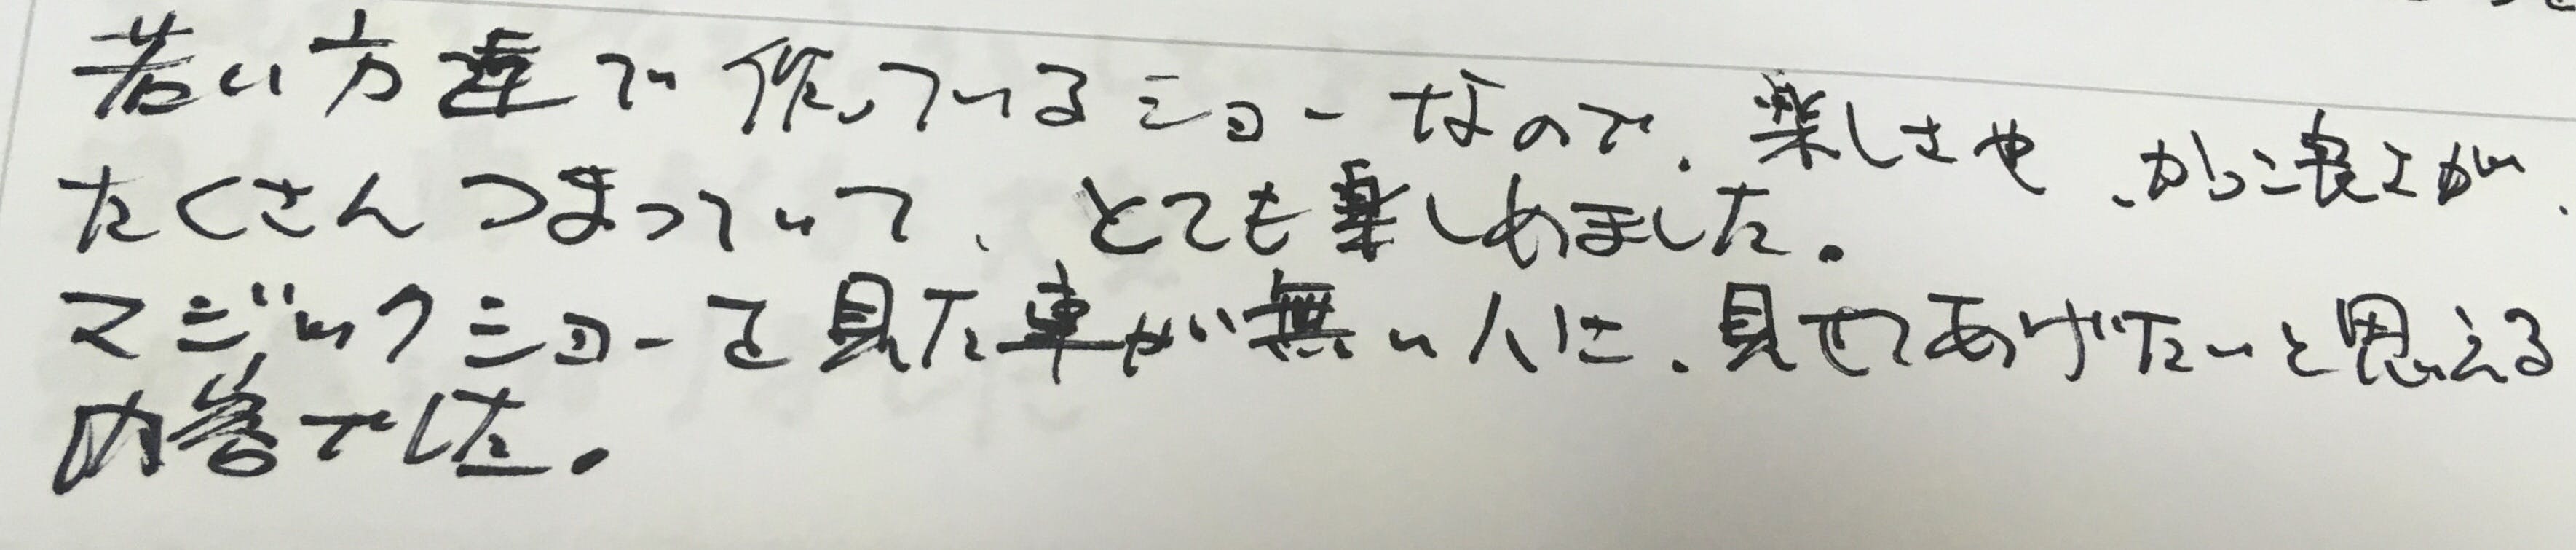 若い方達で作っているショーなので、楽しさや、かっこ良さが、
たくさんつまっていて、とても楽しめました。
マジックショーを見た事が無い人に、見せてあげたいと思える
内容でした。